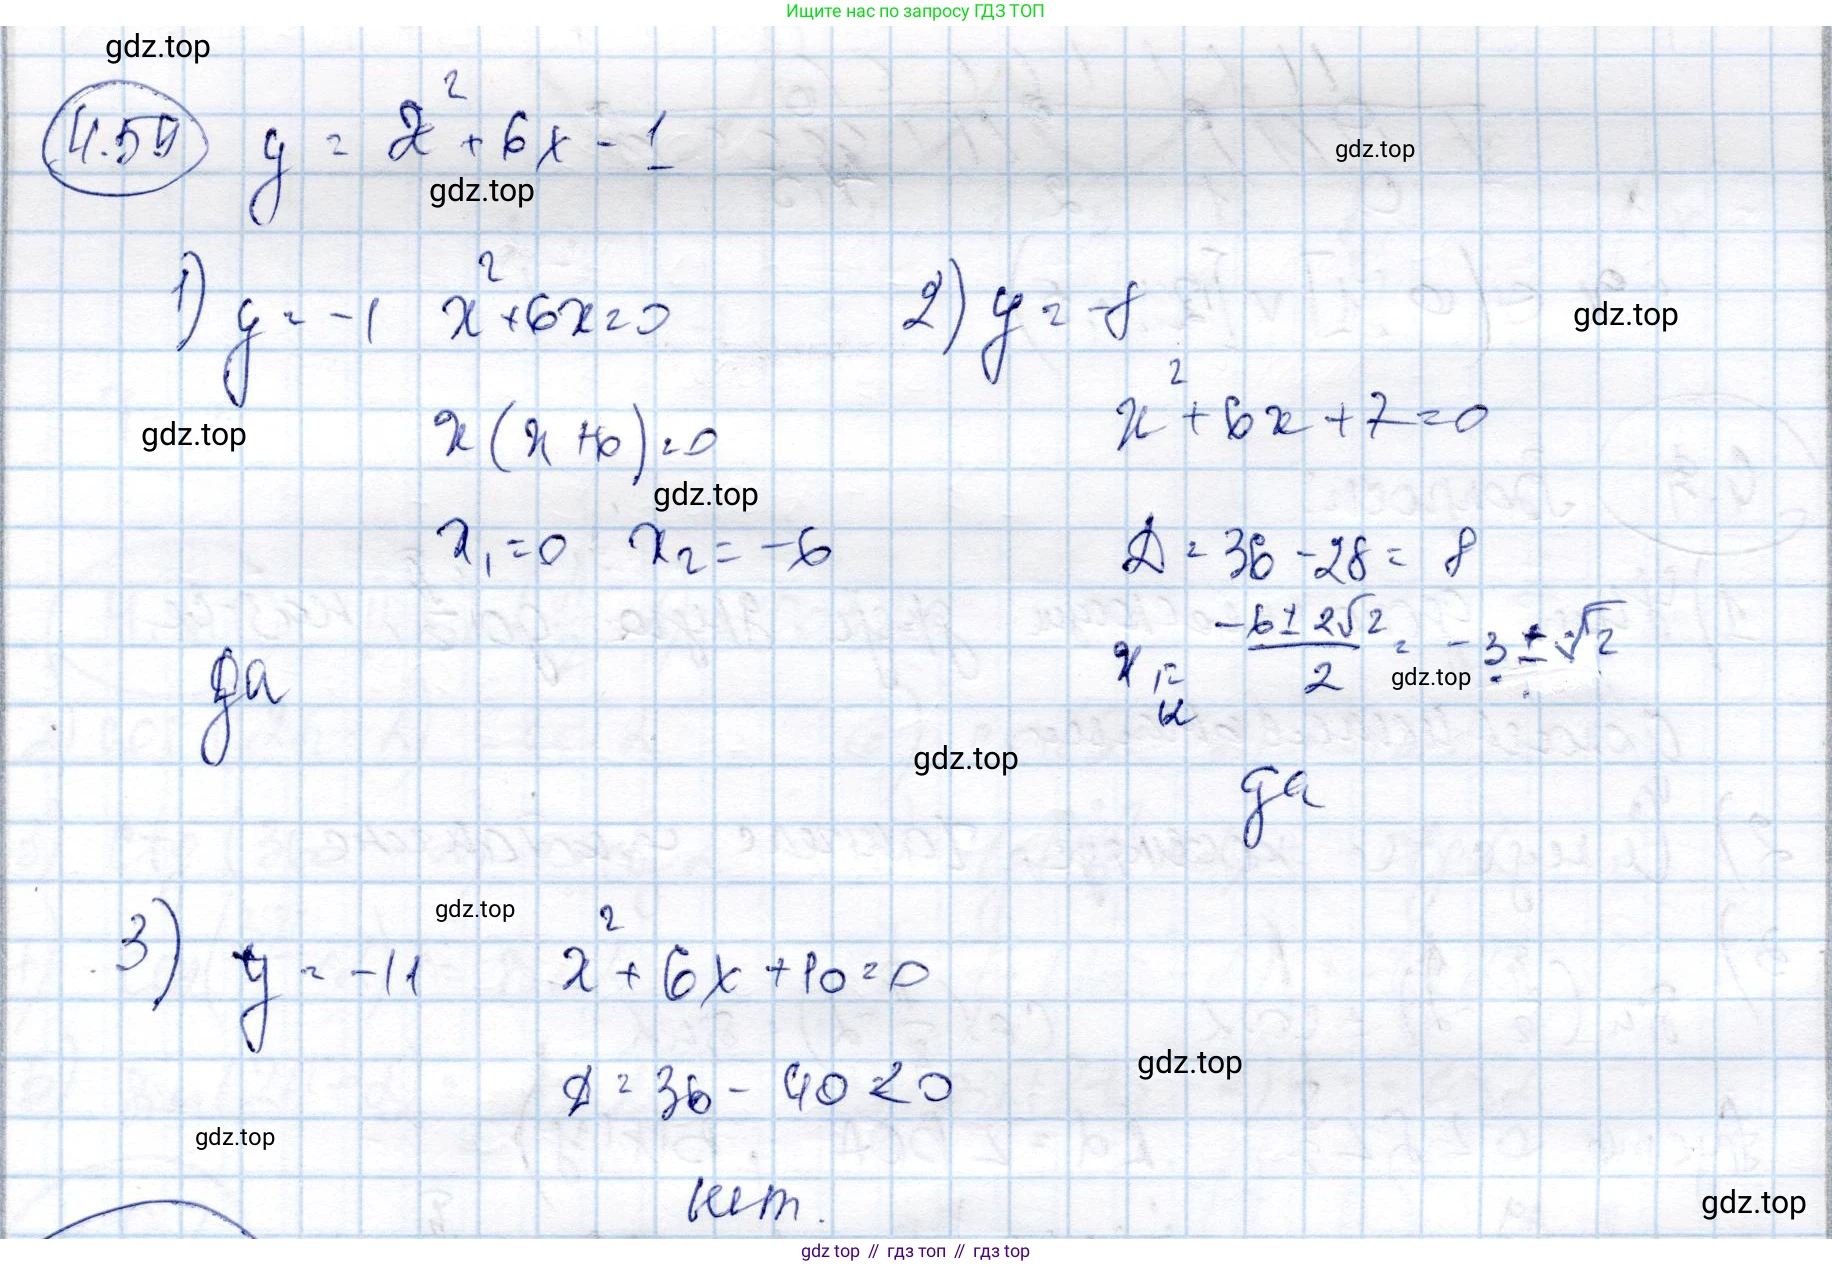 Ищите нас по запросу ГДЗ ТОП
gdz.top
4.59 y = x² + 6x - 1
gdz.top
gdz.top
1) y = -1 x² + 6x = 0
2) y = -8
gdz.top
x² + 6x + 7 = 0
gdz.top
x(x+6) = 0
gdz.top
x₁ = 0 x₂ = -6
D = 36 - 28 = 8
x₁,₂ = (-6 ± 2√2)/2 = -3 ± √2
gdz.top
да
gdz.top
да
gdz.top
3) y = -11 x² + 6x + 10 = 0
gdz.top
D = 36 - 40 < 0
gdz.top
нет.
gdz.top
gdz top // гдз топ // гдз top